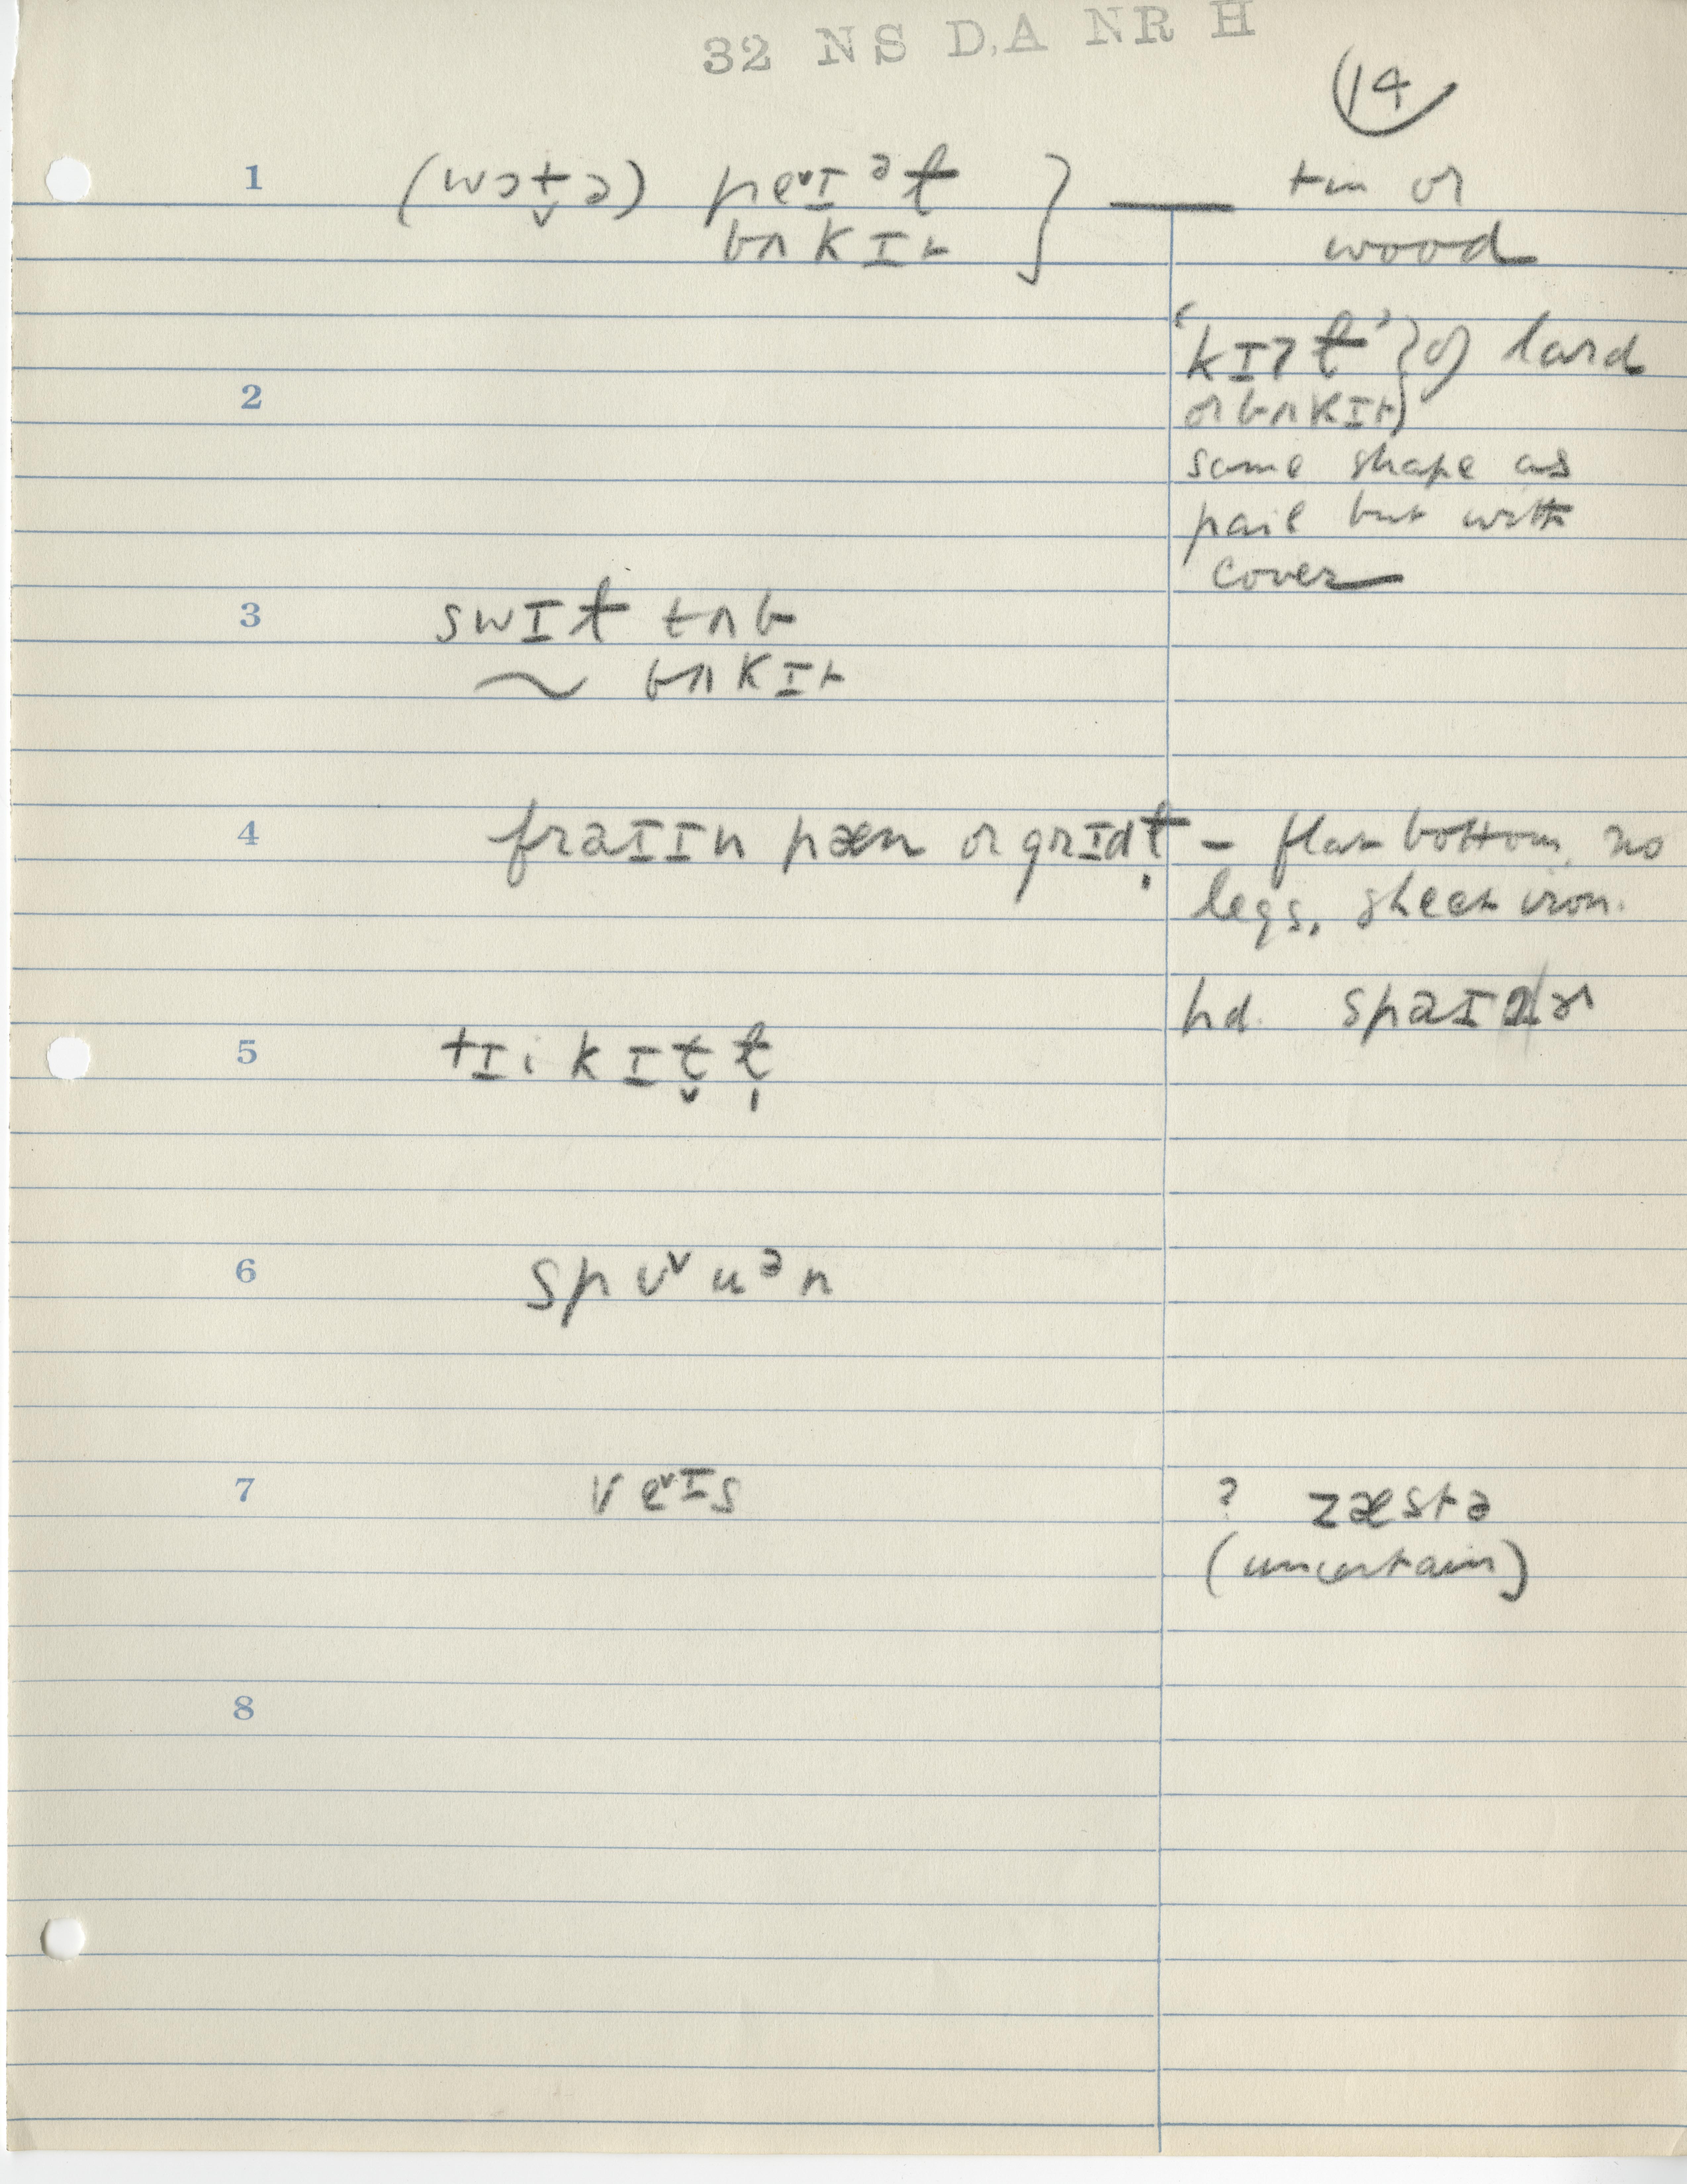 32 NS D.A NR H
14
1 (wɔt̬ə) pe˅ɪᵊɫ } — tin or
bʌkɪt wood
'kɪɾɫ' } of lard
2 or bʌkɪt
same shape as
pail but with
cover
3 swɪɫ tʌb
~ bʌkɪt
4 fraɪɪn pæn or grɪdɫ̩ – flat bottom, no
legs, sheet iron.
hd. spaɪdɚ
5 tɪi kɪt̬ɫ̩
6 spʊ˅uᵊn
7 ve˅ɪs ? zæstə
(uncertain)
8